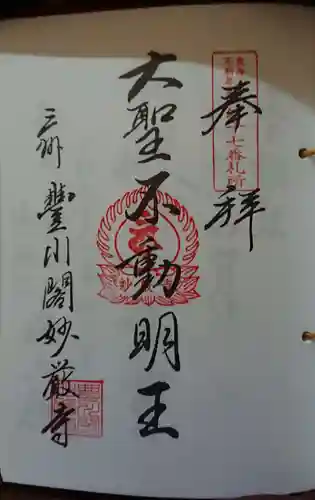 奉拝
七番札所
大聖不動明王
三州 豊川閣妙厳寺